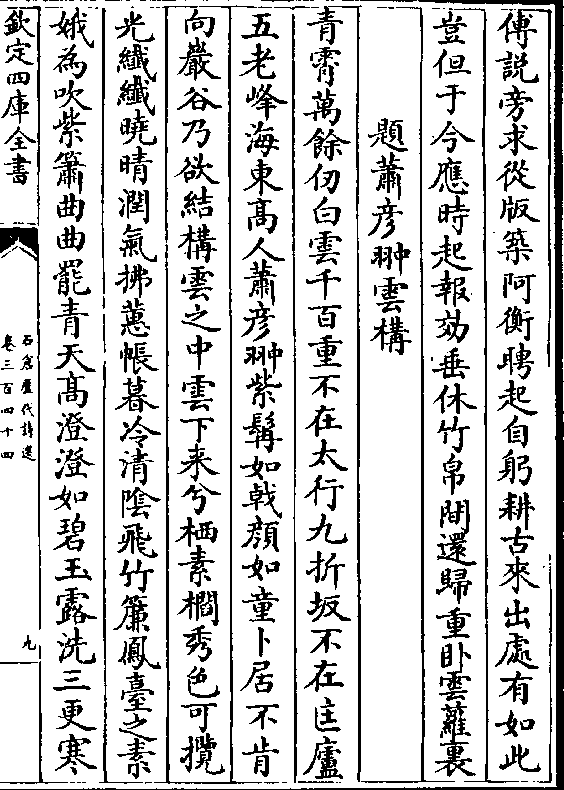 傅説旁求從版築阿衡聘起自躬耕古來出處有如此
豈但于今應時起報効垂休竹帛間還歸重卧雲蘿裏
題蕭彦翀雲構
青霄萬餘仞白雲千百重不在太行九折坂不在匡廬
五老峰海東髙人蕭彦翀紫髯如戟顔如童卜居不肯
向巖谷乃欲結構雲之中雲下来兮栖素櫩秀色可攬
光纖纖曉晴潤氣拂蕙帳暮冷清陰飛竹簾鳳臺之素
娥為吹紫簫曲曲罷青天髙澄澄如碧玉露洗三更寒
欽定四庫全書
石倉歷代詩選
卷三百四十四
九